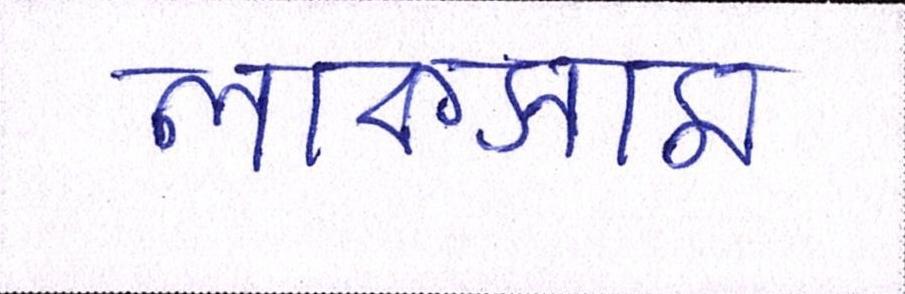 লাকসাম